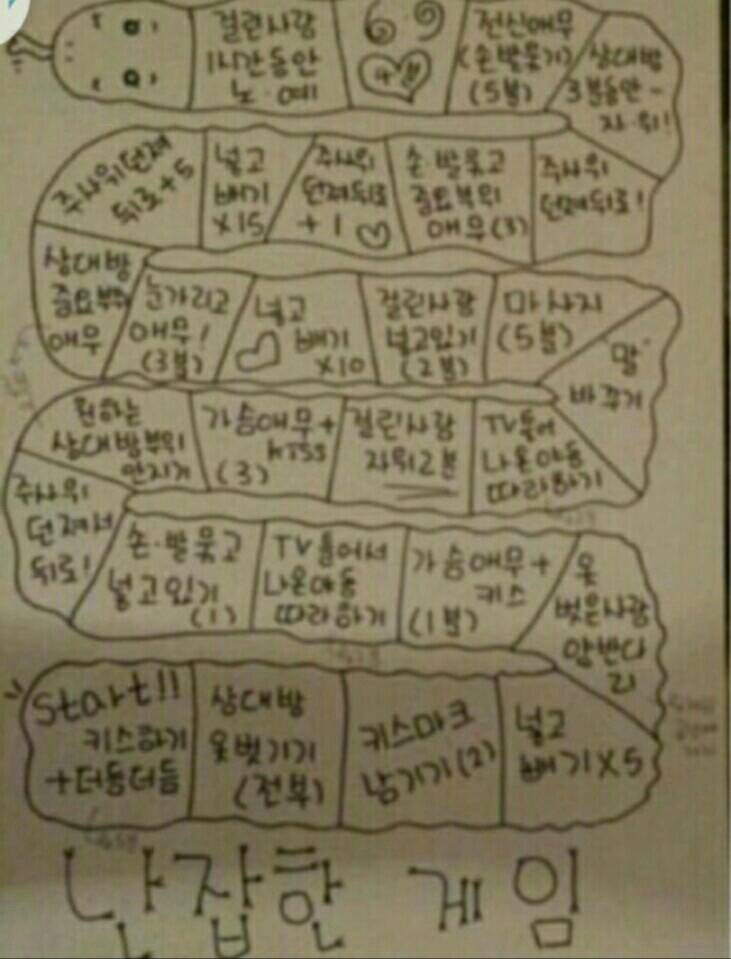 걸린사람
1시간동안
노·예
6·9
전신애무
(손발묶기)
(5분)
상대방
3분동안-
자·위!
주사위던져
뒤로+5
넣고
빼기
x15
주사위
던져뒤로
+1
손·발묶고
중요부위
애무(3)
주사위
던져뒤로!
상대방
중요부위
애무
눈가리고
애무!
(3분)
넣고
빼기
x10
걸린사람
넣고있기
(2분)
마사지
(5분)
"말"
바꾸기
원하는
상대방부위
만지기
가슴애무+
kiss
(3)
걸린사람
자위2분
TV틀어
나온야동
따라하기
주사위
던져서
뒤로!
손·발묶고
넣고있기
(1)
TV틀어서
나온야동
따라하기
가슴애무+
키스
(1분)
옷
벗은사람
start!!
키스하기
+더듬더듬
상대방
옷벗기기
(전부)
키스마크
남기기(2)
넣고
빼기x5
난잡한 게임